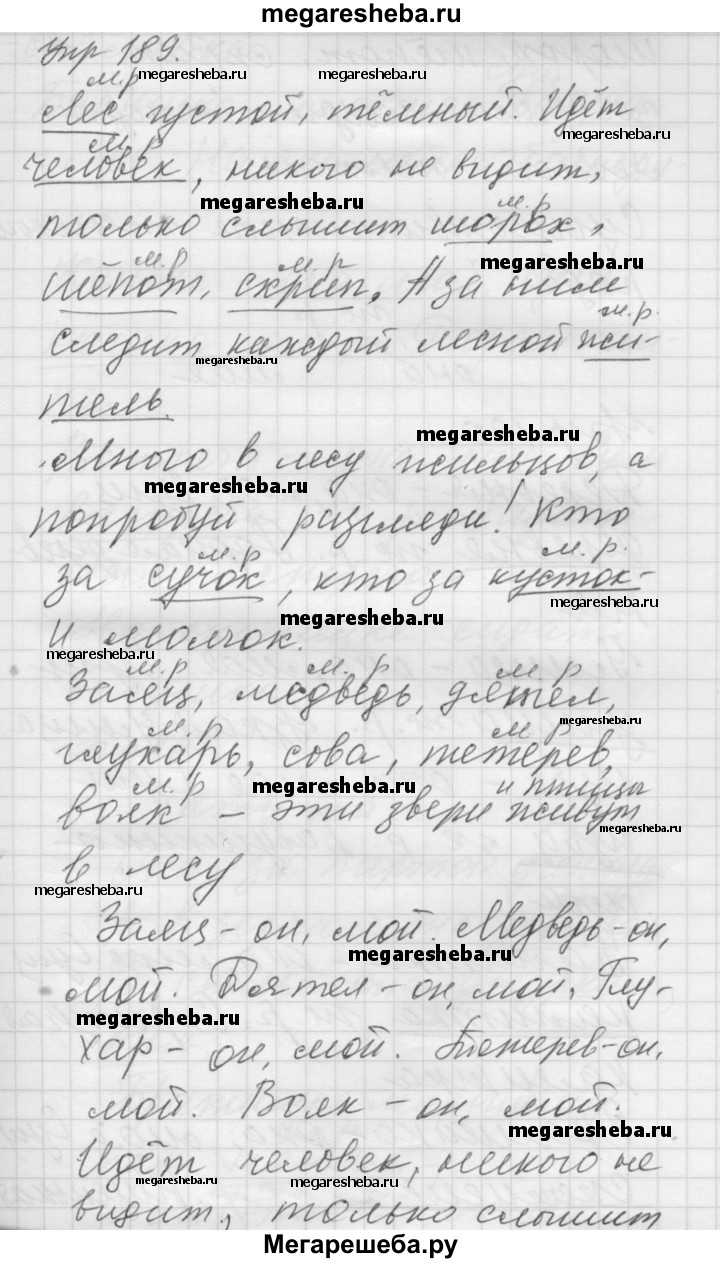 megaresheba.ru
Упр 189.
м.р
megaresheba.ru megaresheba.ru
Лес густой, тёмный. Идёт
megaresheba.ru
м.р
человек, никого не видит,
megaresheba.ru
м.р
только слышит шорох,
megaresheba.ru
м.р м.р
шёпот, скрип. А за ним
м.р.
следит каждый лесной жи-
megaresheba.ru
тель.
megaresheba.ru
Много в лесу жильцов, а
megaresheba.ru
попробуй разгляди! Кто
м.р м.р.
за сучок, кто за кусток-
megaresheba.ru
megaresheba.ru
и молчок.
megaresheba.ru
м.р м.р м.р
Заяц, медведь, дятел,
megaresheba.ru
м.р м.р
глухарь, сова, тетерев,
megaresheba.ru
м.р и птицы
волк – эти звери живут
megaresheba.ru
в лесу
megaresheba.ru
Заяц – он, мой. Медведь – он,
megaresheba.ru
мой. Дятел – он, мой. Глу-
megaresheba.ru
хар – он, мой. Тетерев – он,
мой. Волк – он, мой.
megaresheba.ru
Идёт человек, никого не
megaresheba.ru megaresheba.ru
видит, только слышит
megaresheba.ru
Мегарешеба.ру